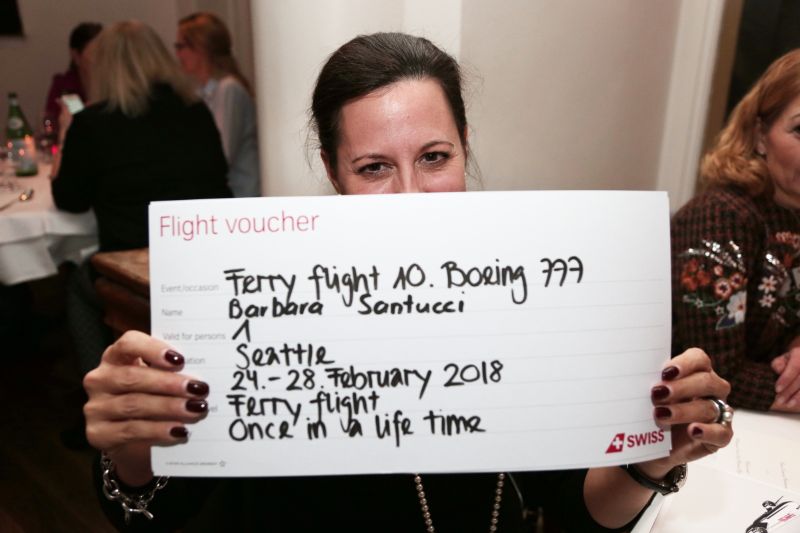 Flight voucher
Event/occasion Ferry flight 10. Boeing 777
Name Barbara Santucci
Valid for persons 1
Seattle
24.-28. February 2018
Ferry flight
Once in a life time
SWISS
A STAR ALLIANCE MEMBER